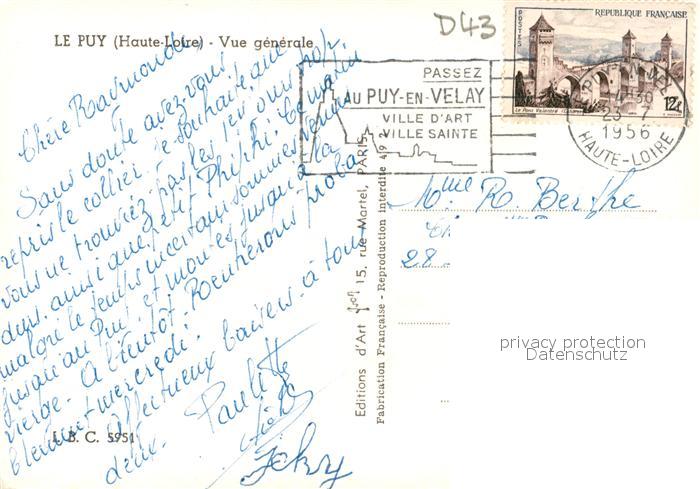 LE PUY (Haute-Loire) - Vue générale
D43
POSTES
RÉPUBLIQUE FRANÇAISE
Le Pont Valentré (Cahors)
12F
PASSEZ
AU PUY-EN-VELAY
VILLE D'ART
VILLE SAINTE
23-7
1956
HAUTE-LOIRE
Chère Raymonde
Sans doute avez vous
repris le collier. Je souhaite que
vous ne trouviez pas les jours trop
durs, ainsi que petit Phiphi. Ce matin
malgré le temps incertain sommes venus
jusqu'au Puy, et montés jusqu'à la
Vierge. A bientôt. Rentrerons proba
blement mercredi.
Affectueux baisers à tous
deux.
Paulette
Mme R. Berthe
28
Editions d'Art 15, rue Martel, PARIS
Fabrication Française - Reproduction interdite
B. C. 5951
privacy protection
Datenschutz